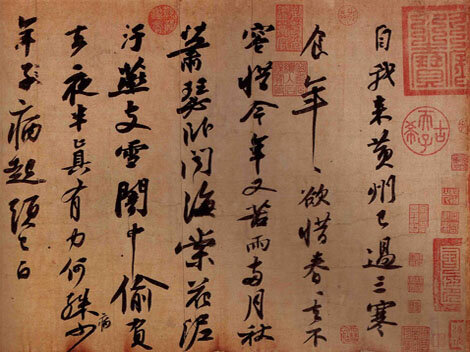 自我來黃州已過三寒
食年〻欲惜春〻去不
容惜今年又苦雨兩月秋
蕭瑟卧聞海棠花泥
汙燕支雪闇中偷負
去夜半真有力何殊少
病
年子病起頭已白
古希天子